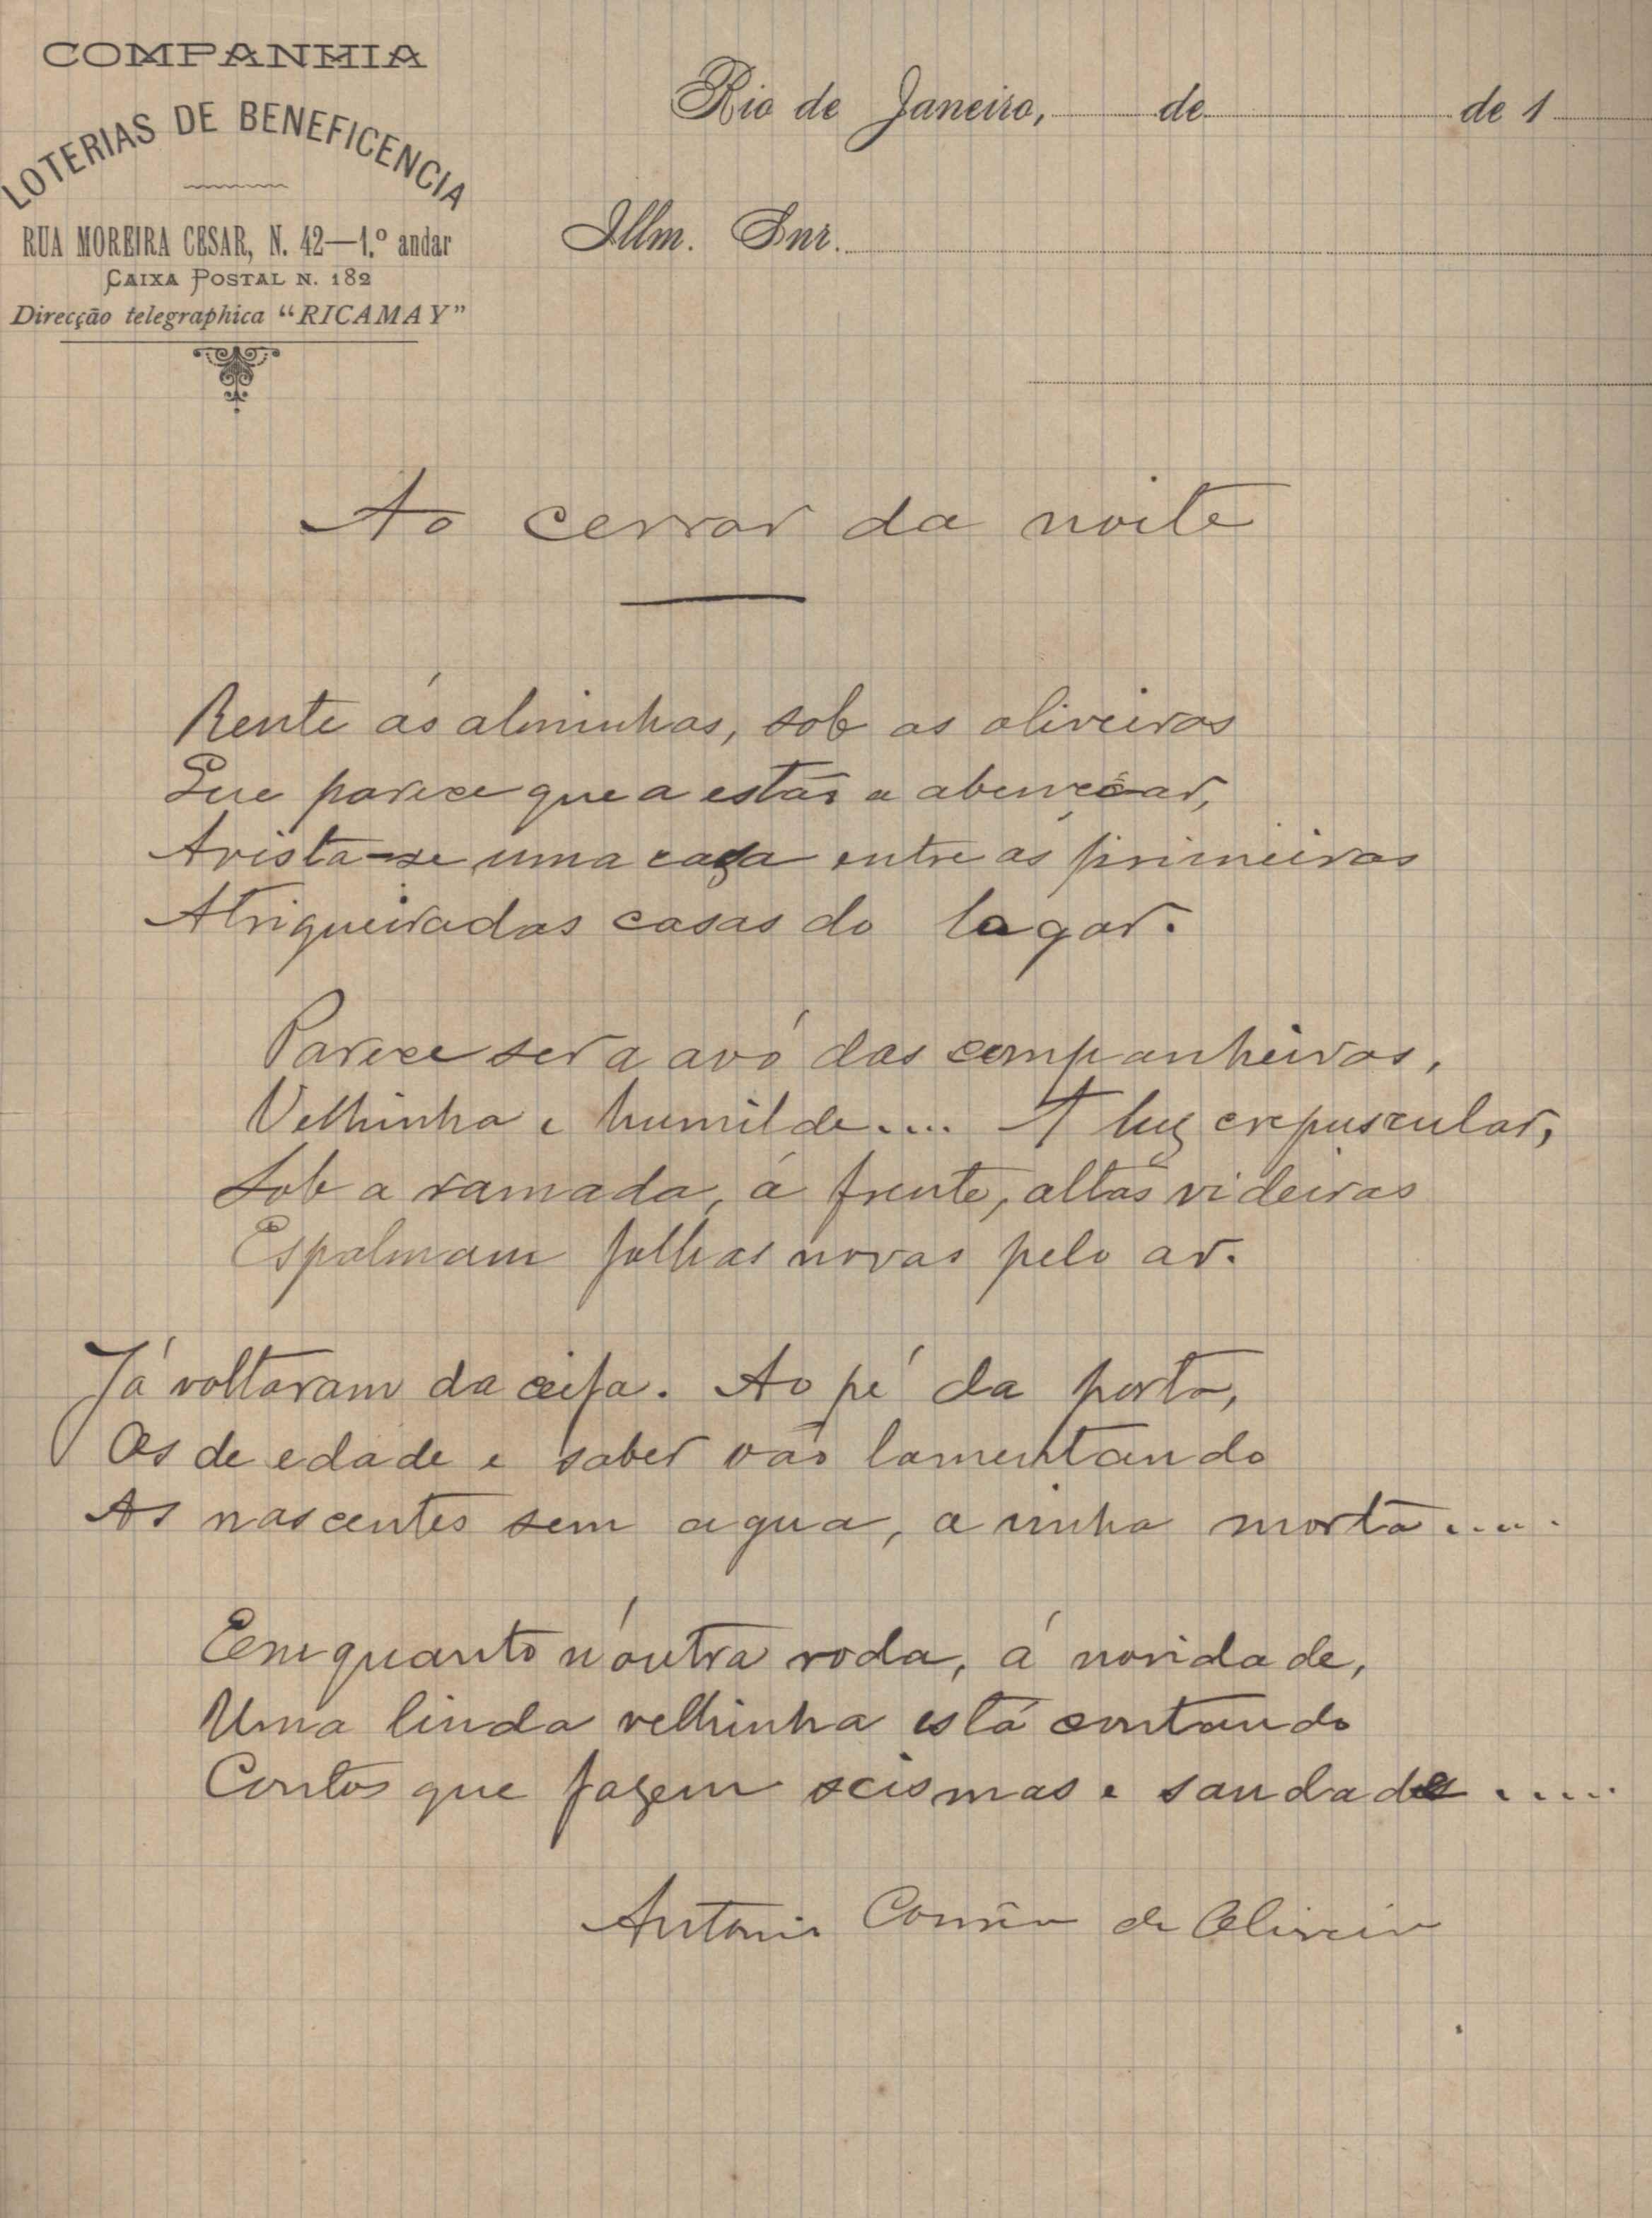 COMPANHIA
LOTERIAS DE BENEFICENCIA
RUA MOREIRA CESAR, N. 42—1.º andar
CAIXA POSTAL N. 182
Direcção telegraphica "RICAMAY"
Rio de Janeiro, de de 1
Illm. Snr.
Ao cerrar da noite
Rente ás alminhas, sob as oliveiras
Que parece que a estão a abençoar,
Avista-se uma casa entre as primeiras
Atrigueiradas casas do lagar.
Parece ser a avó das companheiras,
Velhinha e humilde.... A luz crepuscular,
Sob a ramada, á frente, altas videiras
Espalmam folhas novas pelo ar.
Já voltaram da ceifa. Ao pé da porta,
Os de edade e saber vão lamentando
As nascentes sem agua, a vinha morta....
Emquanto n'outra roda, á novidade,
Uma linda velhinha está contando
Contos que fazem scismas e saudade.....
Antonio Corrêa de Oliveira